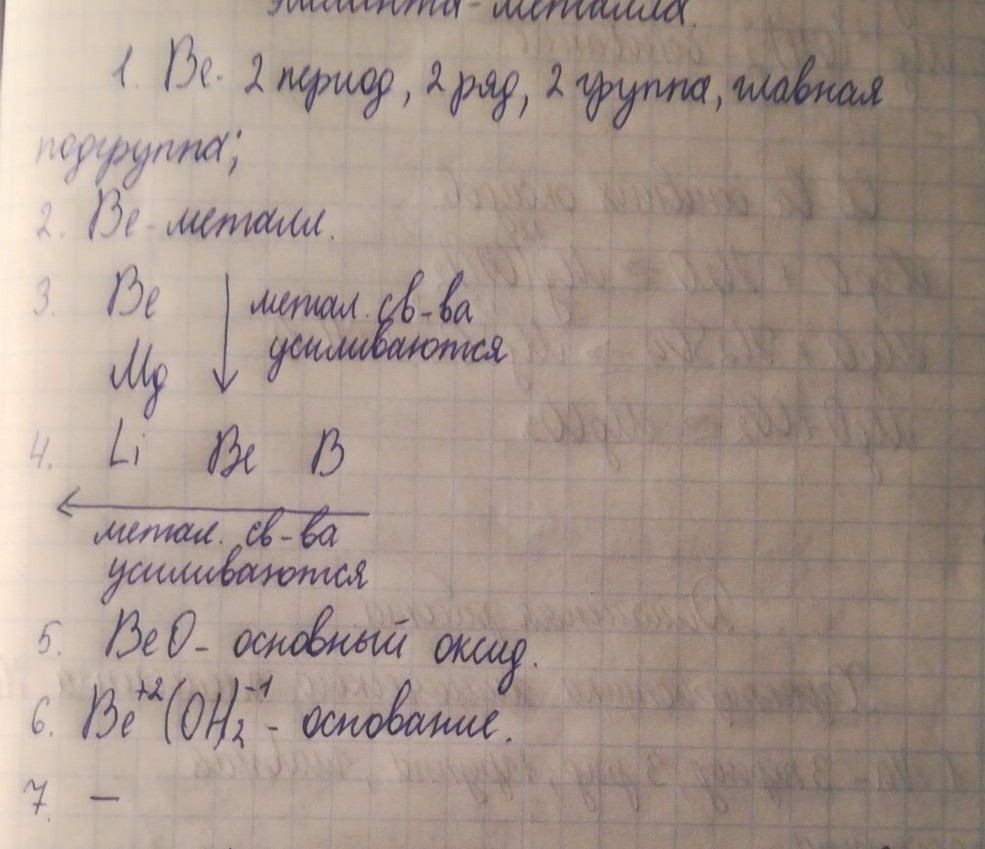 элемента-металла.
1. Be - 2 период, 2 ряд, 2 группа, главная
подгруппа;
2. Be - металл.
3. Be метал. св-ва
усиливаются
Mg
4. Li Be B
метал. св-ва
усиливаются
5. BeO - основный оксид.
6. Be⁺²(OH)₂⁻¹ - основание.
7. —